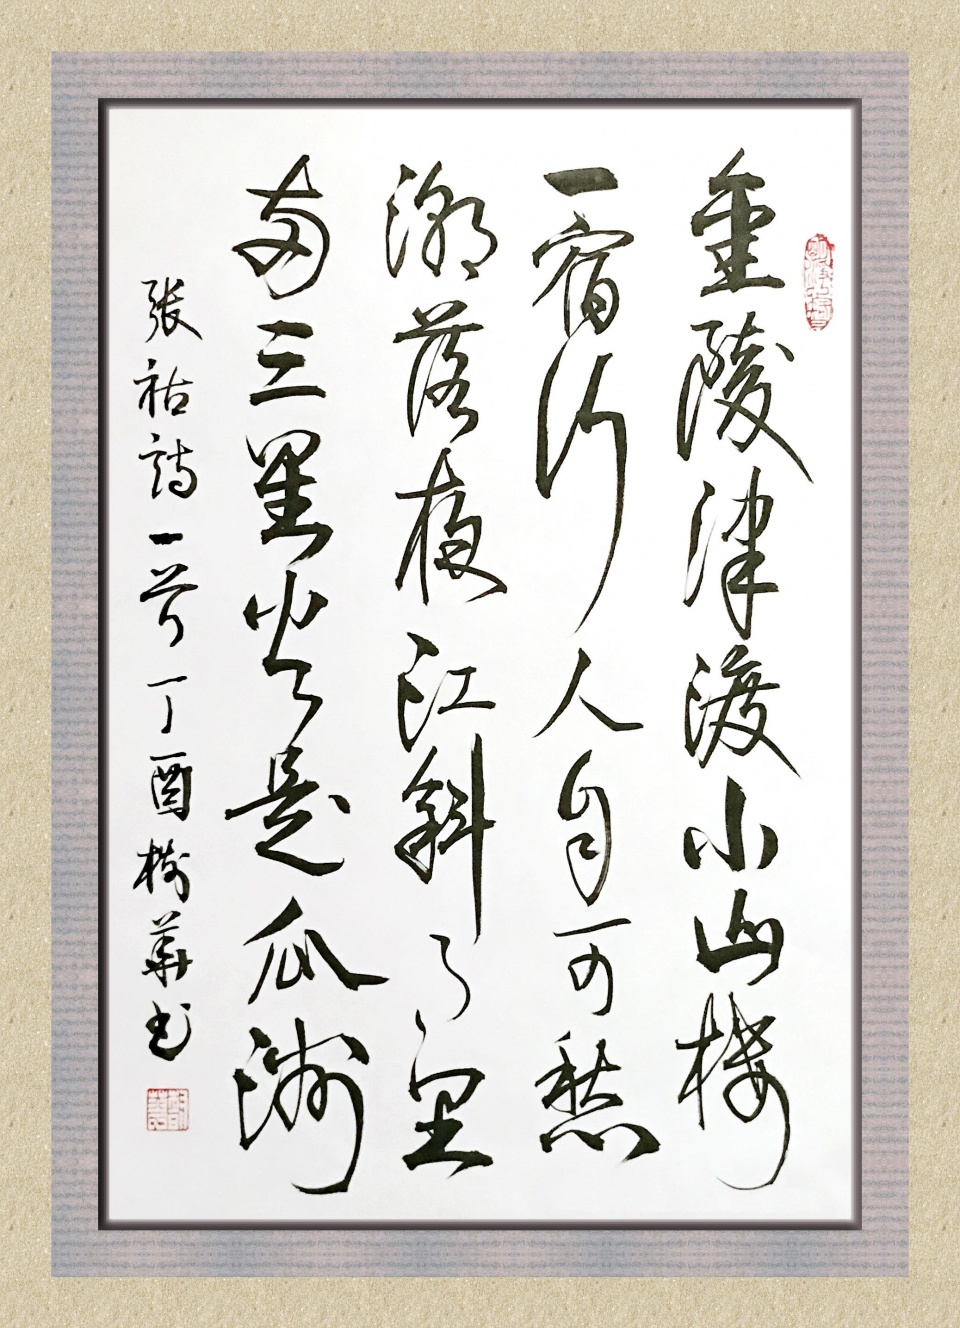 金陵津渡小山樓
一宿行人自可愁
潮落夜江斜月里
兩三星火是瓜洲
張祜詩一首丁酉樹華书